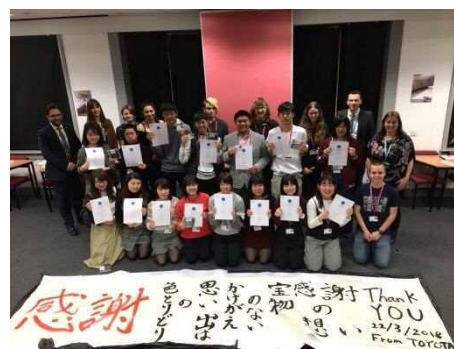 感謝
色とりどり
の
思い出は
かけがえ
のない
宝物
感謝
の想い
Thank
YOU
22/3/2018
From TOYOTA